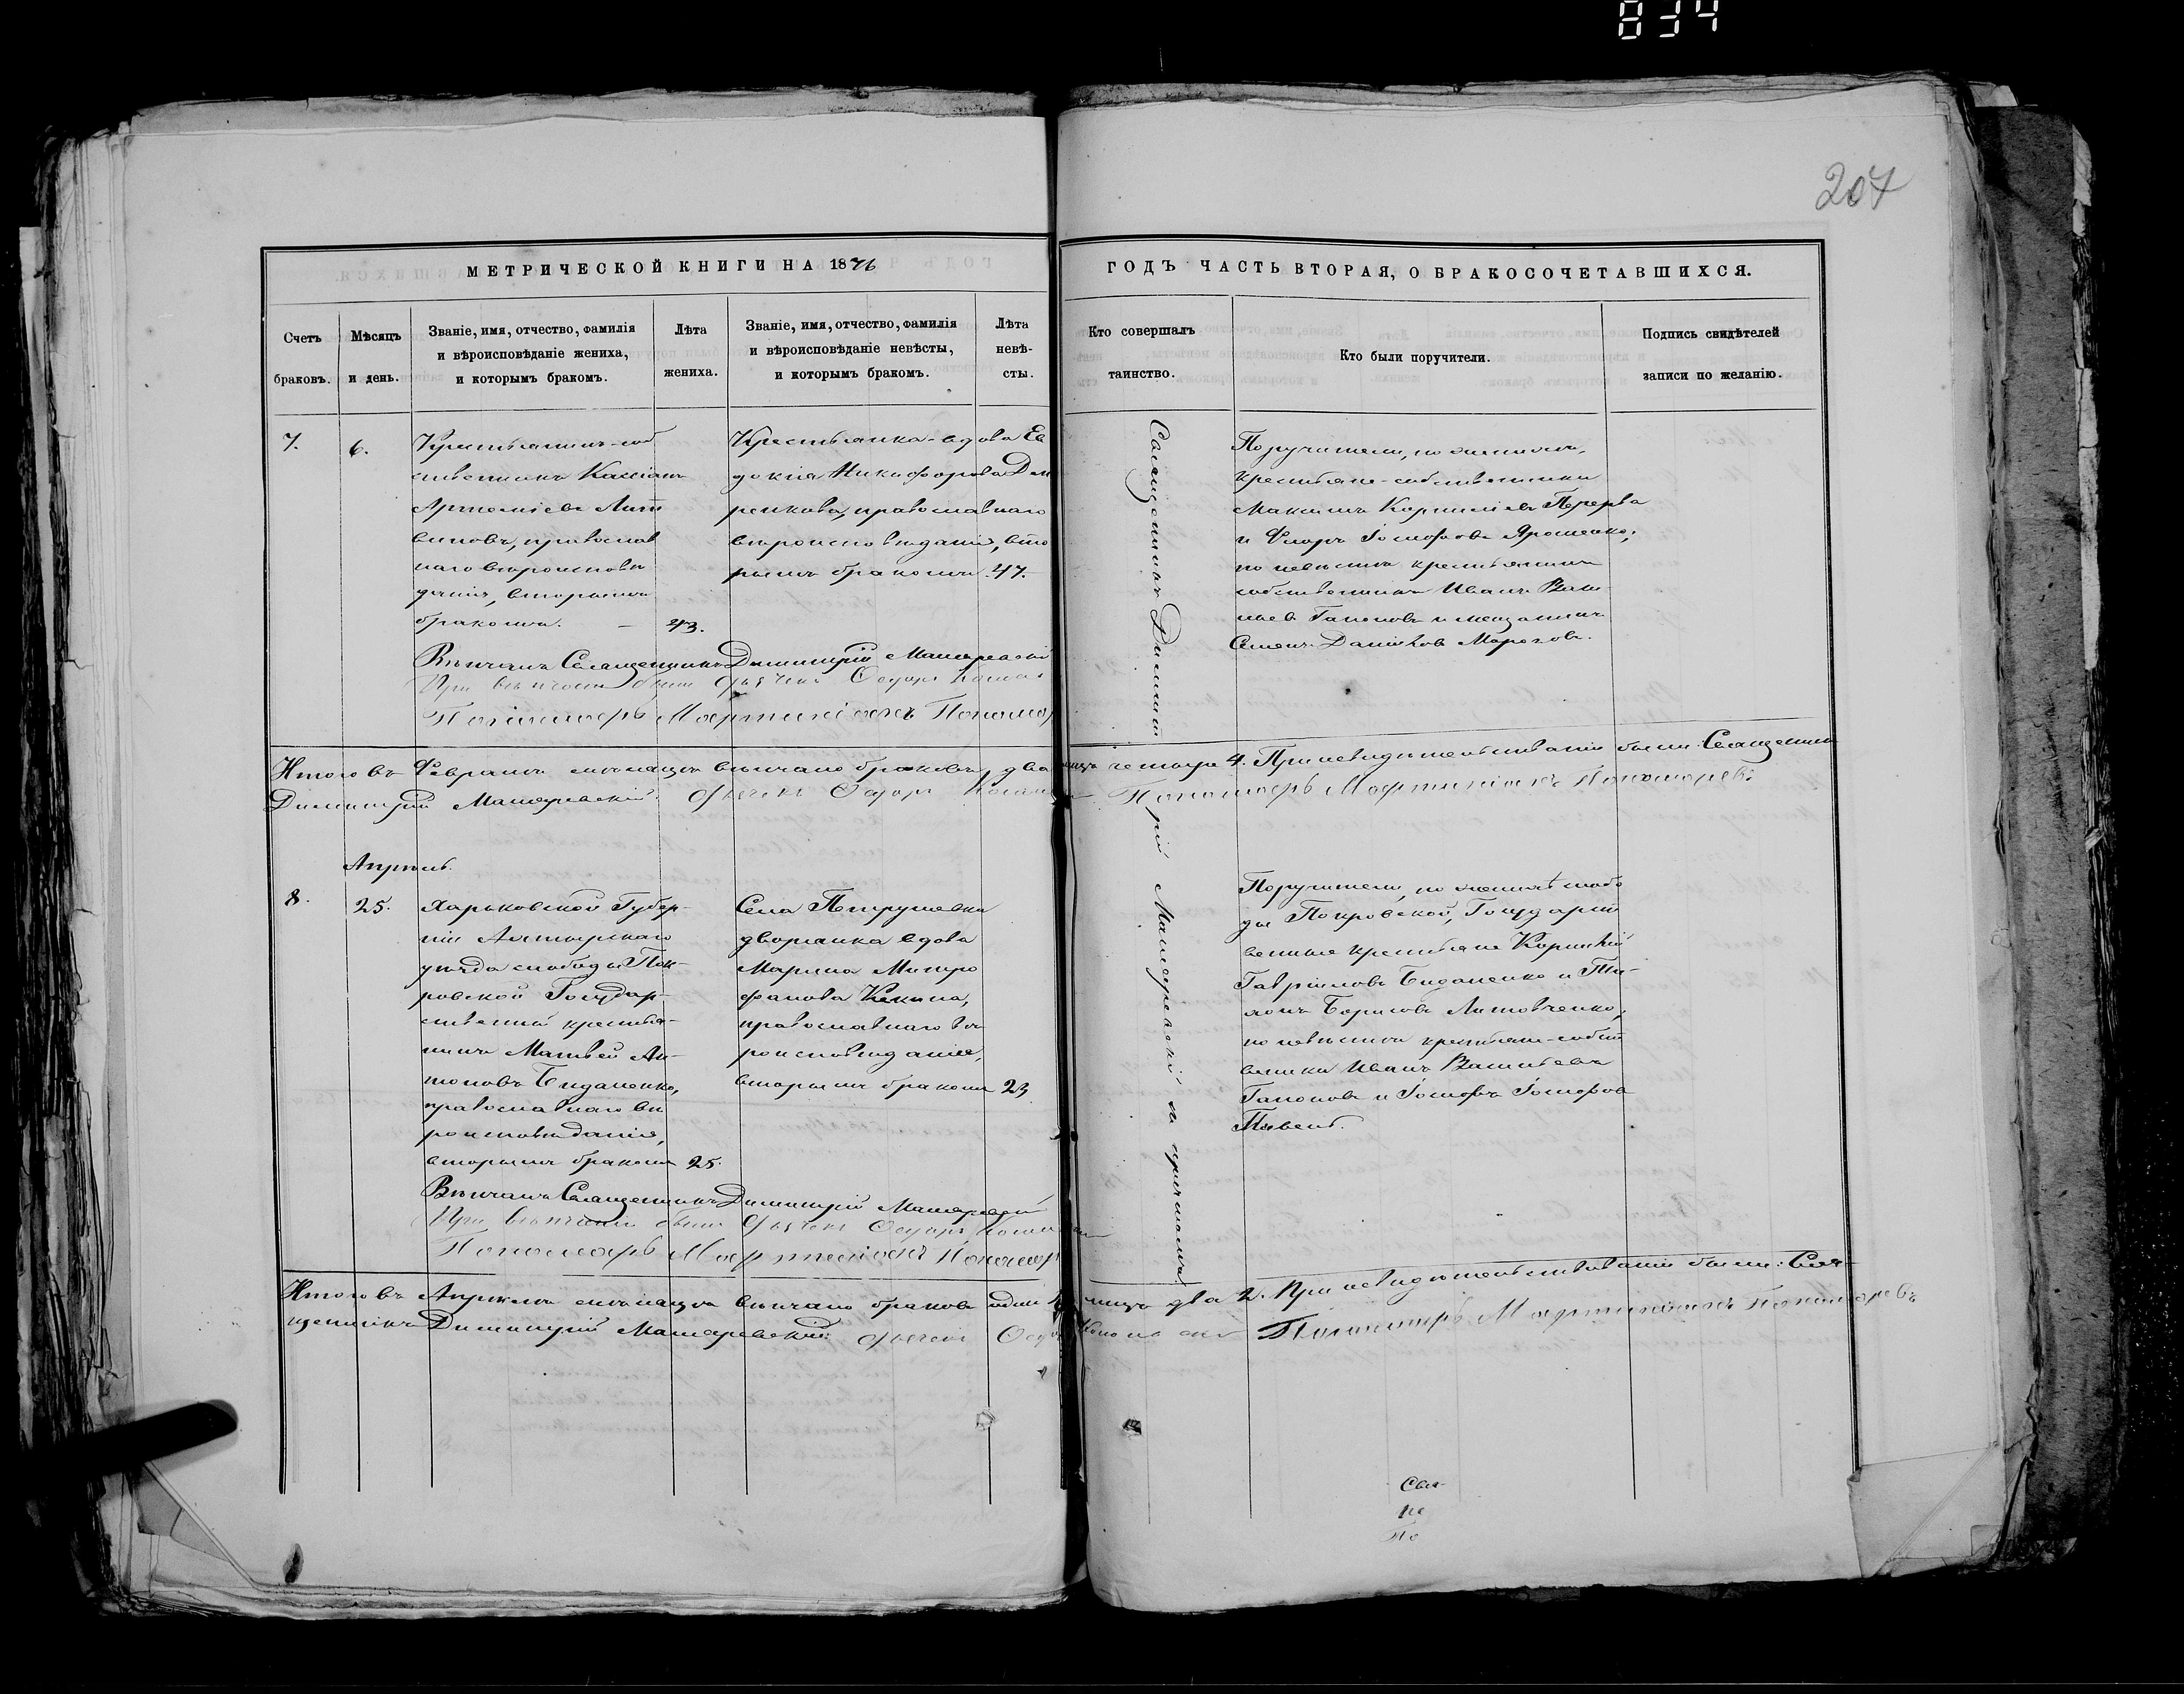 834
207
МЕТРИЧЕСКОЙ КНИГИ НА 1876
ГОДЪ ЧАСТЬ ВТОРАЯ, О БРАКОСОЧЕТАВШИХСЯ.
Счетъ браковъ.
Мѣсяцъ и день.
Званіе, имя, отчество, фамилія
и вѣроисповѣданіе жениха,
и которымъ бракомъ.
Лѣта
жениха.
Званіе, имя, отчество, фамилія
и вѣроисповѣданіе невѣсты,
и которымъ бракомъ.
Лѣта
невѣ-
сты.
Кто совершалъ
таинство.
Кто были поручители.
Подпись свидѣтелей
записи по желанію.
7.
6.
Крестьянинъ-соб
ственникъ Кассіанъ
Артеміевъ Литв
виновъ, православ
наго вѣроисповѣ
данія, вторымъ
бракомъ. –
43.
Крестьянка-вдова Ев
докія Никифорова Дем
ренкова, православнаго
вѣроисповѣданія, вто
рымъ бракомъ.
47.
Вѣнчалъ Священникъ Димитрій
При вѣнчаніи были Дьячекъ Ѳедоръ
Пономарь Мартиніанъ Пономар
Священникъ Димитрій съ причтомъ
Поручители, по женихѣ,
крестьяне-собственники
Максимъ Корниліевъ Перерва
и Флоръ Іосифовъ Ярошенко;
по невѣстѣ крестьянинъ
собственникъ Иванъ Васи
льевъ Гапоновъ и мещанинъ
Семенъ Даніиловъ Морозовъ.
Итого въ Февралѣ мѣсяцѣ вѣнчано браковъ, два лицъ четыре 4. При свидѣтельствованіи были: Священникъ
Димитрій Дьячекъ Ѳедоръ Пономарь Мартиніанъ Пономаревъ
Апрѣль.
8.
25.
Харьковской Губер-
ніи Ахтырскаго
уѣзда слободы Пок-
ровской Государ-
ственный крестья-
нинъ Матвей Ан-
тоновъ Биданенко,
православнаго вѣ
роисповѣданія,
вторымъ бракомъ
25.
Села Петрушевки
дворянка вдова
Марина Митро
фанова Кекина,
православнаго вѣ
роисповѣданія,
вторымъ бракомъ
23
Поручители, по женихѣ слобо
ды Покровской, Государст
венные крестьяне Корнилій
Гавріиловъ Биданенко и Ти-
хонъ Борисовъ Литовченко,
по невѣстѣ крестьяне-собст
венники Иванъ Васильевъ
Гапоновъ и Іосифъ Іосифовъ
Пивень.
Вѣнчалъ Священникъ Димитрій
При вѣнчаніи были Дьячекъ Ѳедоръ
Пономарь Мартиніанъ Пономар
Итого въ Апрѣлѣ мѣсяцѣ вѣнчано браковъ одинъ 1, лицъ два 2. При свидѣтельствованіи были: Свя-
щенникъ Димитрій Дьячекъ Ѳедоръ Пономарь Мартиніанъ Пономаревъ
Свя-